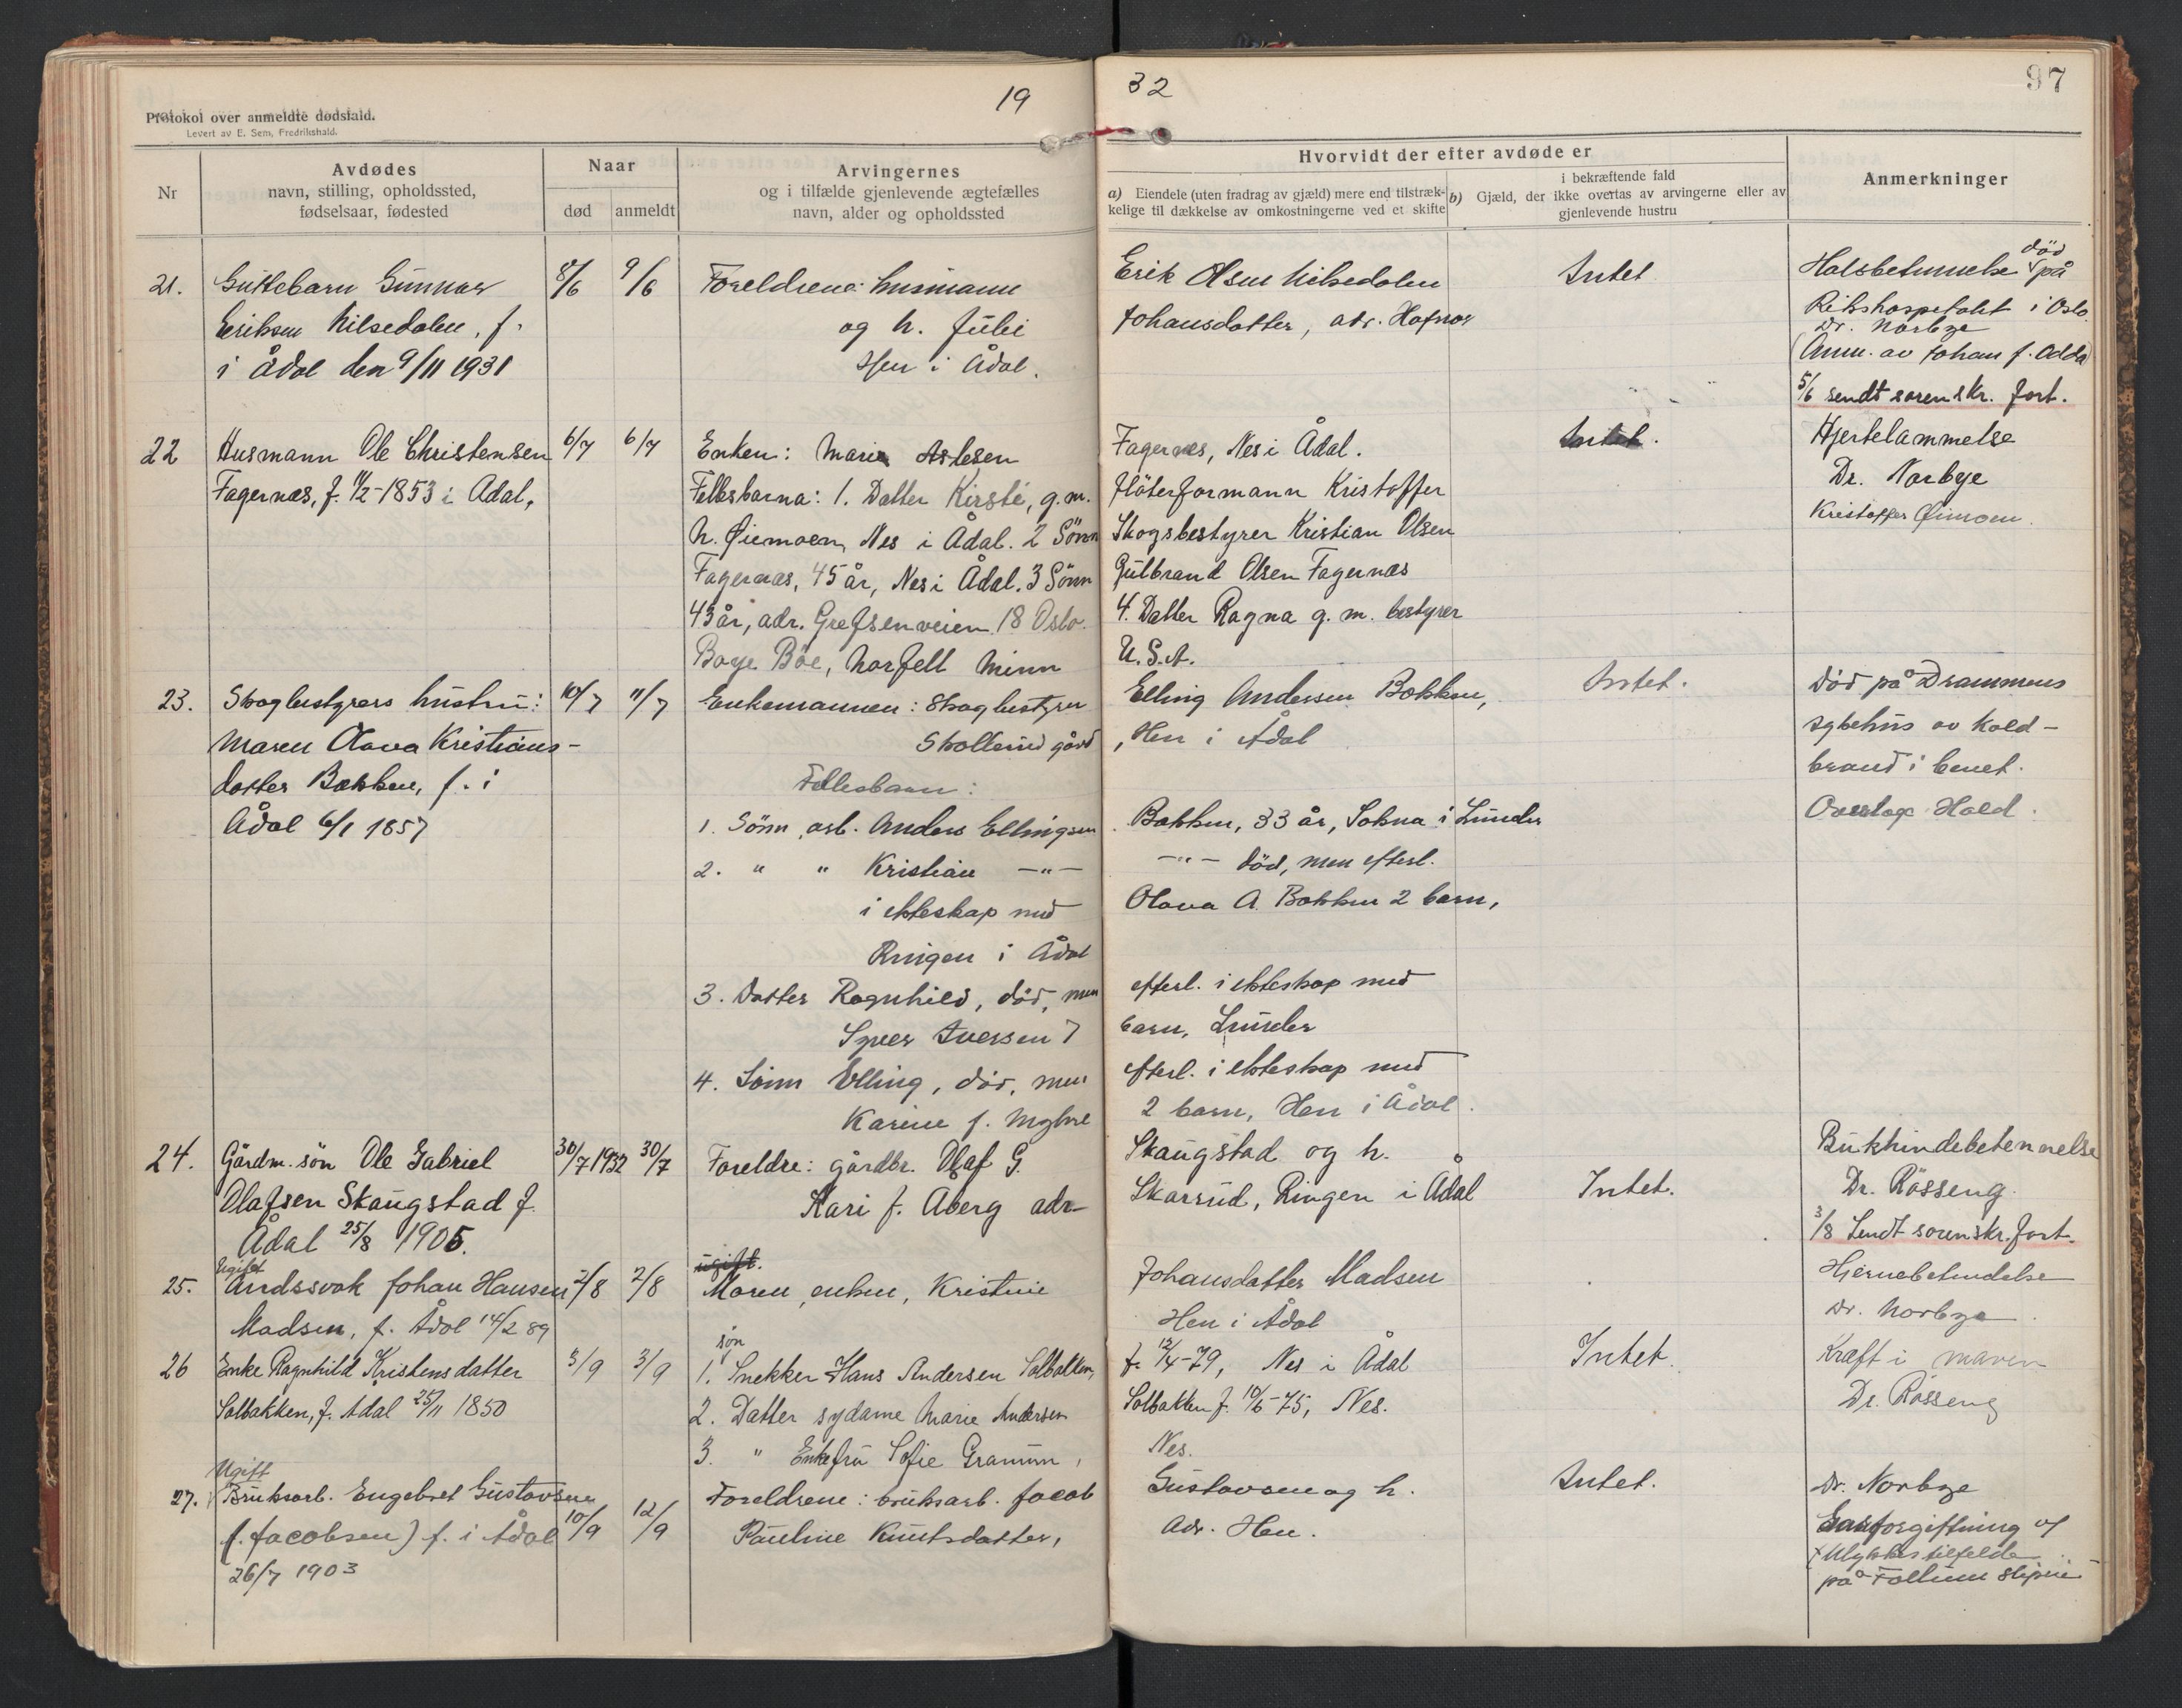 19
32
97
Protokol over anmeldte dødsfald.
Levert av E. Sem, Fredrikshald.
Nr
Avdødes
navn, stilling, opholdssted,
fødselsaar, fødested
Naar
død
anmeldt
Arvingernes
og i tilfælde gjenlevende ægtefælles
navn, alder og opholdssted
Hvorvidt der efter avdøde er
a) Eiendele (uten fradrag av gjæld) mere end tilstræk-
kelige til dækkelse av omkostningerne ved et skifte
i bekræftende fald
b) Gjæld, der ikke overtas av arvingerne eller av
gjenlevende hustru
Anmerkninger
21. Guttebarn Gunnar 8/6 9/6 Foreldrene: husmann Erik Olsen Nilsedalen Intet Halsbetennelse død på
Eriksen Nilsedalen, f. og h. Julie Johansdatter, adr. Hafnor Rikshospitalet i Oslo
Dr. Norbye
i Ådal den 9/11 1931 Hen i Ådal. (Anm. av Johan f. Adda)
5/6 sendt sorenskr. fort.
22 Husmann Ole Christensen 6/7 6/7 Enken: Marie Aslesen Fagernes, Nes i Ådal. Intet. Hjertelammelse
Fagernæs, f. 11/2-1853 i Adal. Fellesbarna: 1. Datter Kirsti, g.m. flöterformann Kristoffer Dr. Norbye
H. Øiemoen, Nes i Ådal. 2 Sönn Skogsbestyrer Kristian Olsen Kristoffer Øimoen.
Fagernæs, 45 år, Nes i Ådal. 3 Sönn Gulbrand Olsen Fagernæs
43 år, adr. Grefsenveien 18 Oslo. 4. Datter Ragna g. m. bestyrer
Boye Böe, Norfell Minn U.S.A.
23. Skogbestyrers hustru: 10/7 11/7 Enkemannen: Skogbestyrer Elling Andersen Bakken, Intet. Død på Drammens
Maren Olava Kristians- Skollerud gård, Hen i Ådal sykehus av kold-
datter Bakken, f. i Fellesbarn: brand i benet.
Ådal 6/1 1857 1. Sönn, arb. Anders Ellingsen Bakken, 33 år, Sokna i Lunder Overlæge Hald.
2. " " Kristian -"- -"- död, men efterl.
i ekteskap med Olava A. Bakken 2 barn,
Ringen i Ådal
3. Datter Ragnhild, död, men efterl. i ekteskap med
Syver Iversen 7 barn, Lunder
4. Sönn Elling, död, men efterl. i ekteskap med
Karine f. 2 barn, Hen i Ådal.
24. Gårdm. sön Ole Gabriel 30/7 1932 30/7 Foreldre: gårdbr. Olaf G. Skaugstad og h. Bukhindebetennelse
Olafsen Skaugstad f. Kari f. Aberg adr. Skarrud, Ringen i Ådal Intet. Dr. Rösseng.
Ådal 25/8 1905. 3/8 Sendt sorenskr. fort.
Ugift ugift.
25. Andssvak Johan Hansen 2/8 2/8 Moren, enken, Kristine Johansdatter Madsen Hjernebetendelse
Madsen, f. Ådal 14/2 89 Hen i Ådal Dr. Norbye.
26 Enke Ragnhild Kristensdatter 3/9 3/9 sön 1. Snekker Hans Andersen Solbakken, f. 12/4-79, Nes i Ådal Intet. Kræft i maven
Solbakken, f. Adal 25/11 1850 2. Datter sydame Marie Andersen Solbakken f. 10/6-75, Nes. Dr. Rösseng
3. " Enkefru Sofie Granum, Nes.
Ugift
27. Bruksarb. Engebret Gustavsen 10/9 12/9 Foreldrene: bruksarb. Jacob Gustavsen og h. Intet. Dr. Norbye
(f. Jacobsen) f. i Ådal Pauline Knutsdatter, Adr. Hen. Gassforgiftning v/
26/7 1903 Ulykkestilfelde
på Follum sliperi